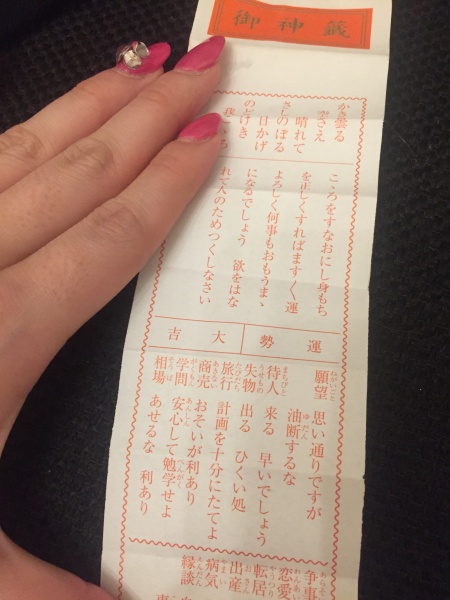 御神籤
かき曇る
空さえ
晴れて
さしのぼる
日かげ
のどけき
こころをすなおにし身もち
を正しくすればますます運
よろしく何事もおもうまゝ
になるでしょう 欲をはな
れて人のためつくしなさい
運勢 大吉
願望 思い通りですが
油断するな
待人 来る 早いでしょう
失物 出る ひくい処
旅行 計画を十分にたてよ
商売 おそいが利あり
学問 安心して勉学せよ
相場 あせるな 利あり
争事
恋愛
転居
出産
病気
縁談